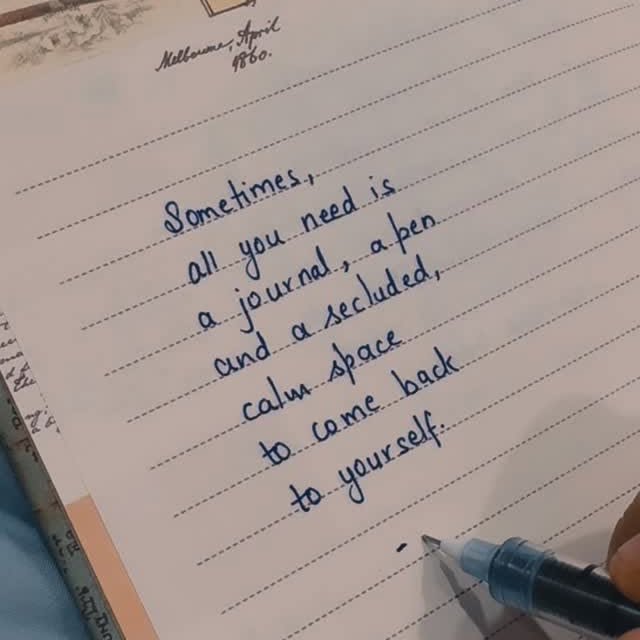 Melbourne, April
1860.
Sometimes,
all you need is
a journal, a pen
and a secluded,
calm space
to come back
to yourself.